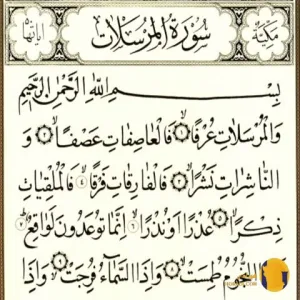 مكية سورة المرسلات آياتها
بسم الله الرحمن الرحيم
والمرسلات عرفا ۝ فالعاصفات عصفا ۝ و
الناشرات نشرا ۝ فالفارقات فرقا ۝ فالملقيات
ذكرا ۝ عذرا او نذرا ۝ انما توعدون لواقع ۝
النجوم طمست ۝ واذا السماء فرجت ۝ واذا